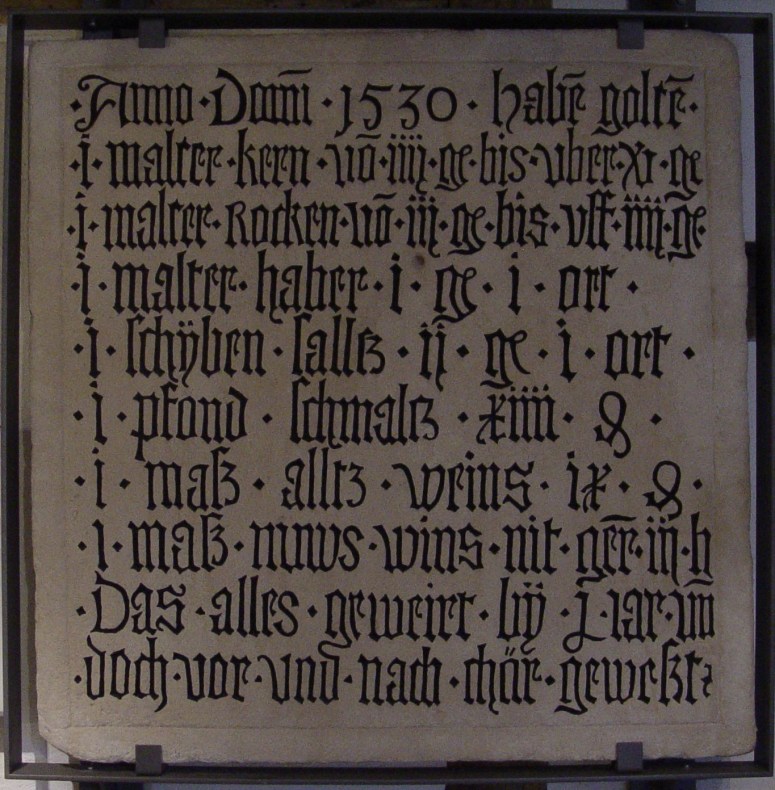 ·Anno·Domī·1530·habē goltē·
·i·malter·kern·vō·iiij·ge·bis·vber·xi·ge
·i·malter·Rocken·vō·iij·ge·bis·vff·iiij·ge
·i·malter·haber·i·ge·i·ort·
·i·schÿben·saltz·ij·ge·i·ort·
·i·pfond·schmaltz·xiiij·₰·
·i·masz·alltz·weins·ix·₰·
·i·masz·nuws·wins·nit·gēr·iij·h
·Das·alles·geweirt·bÿ·L·iar·um̄
·doch·vor·vnd·nach·thür·geweszt·